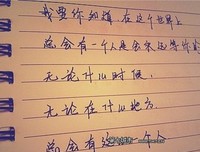 我要你知道 在这个世界上
总会有一个人是会永远等你的
无论什么时候.
无论在什么地方.
总会有这 一个人